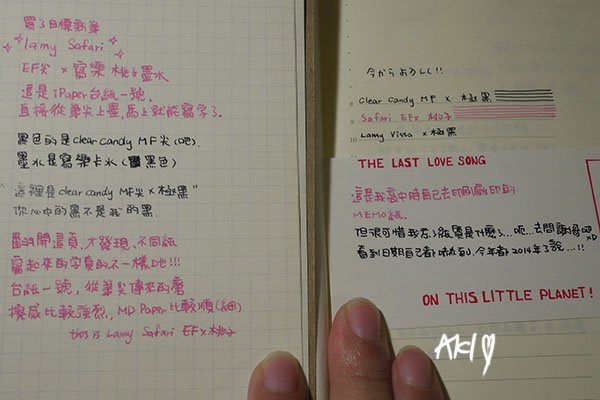 買了目標新筆
"lamy Safari"
EF尖 × 寫樂桃子墨水
這是 iPaper台紙一號,
直接從筆尖上墨,馬上就能寫字了.
黑色的是clear candy MF尖(吧).
墨水是寫樂卡水(黑色)
"這裡是clear candy MF尖×極黑"
你心中的黑不是我的黑.
翻開這頁,才發現、不同紙
寫起來的字真的不一樣吔!!!
台紙一號,從筆尖傳來的磨
擦感比較強烈,, MD Paper比較順(細)
this is Lamy Safari EF×桃子
今からよろしく!!
8 Clear Candy MF × 極黑
9 Safari EF× 桃子
10 Lamy Vissa × 極黑
THE LAST LOVE SONG
這是我高中時自己去印刷廠印的
MEMO紙.
但很可惜我忘了紙質是什麼了...呃...去問
看到日期自己都嚇到,今年都2014年了說...!!
xD
ON THIS LITTLE PLANET!
AKI♡